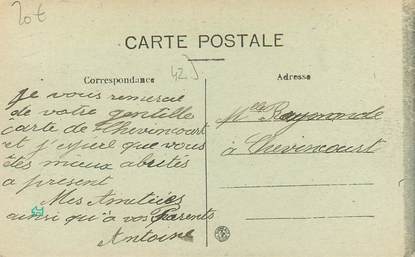 20€
CARTE POSTALE
Correspondance
42
Adresse
Je vous remercie
de votre gentille
carte de Chevincourt
et j'espère que vous
êtes mieux abrités
a present
Mes Amitiées
ainsi qu'à vos Parents
Antoine
Mlle Raymonde
à Chevincourt